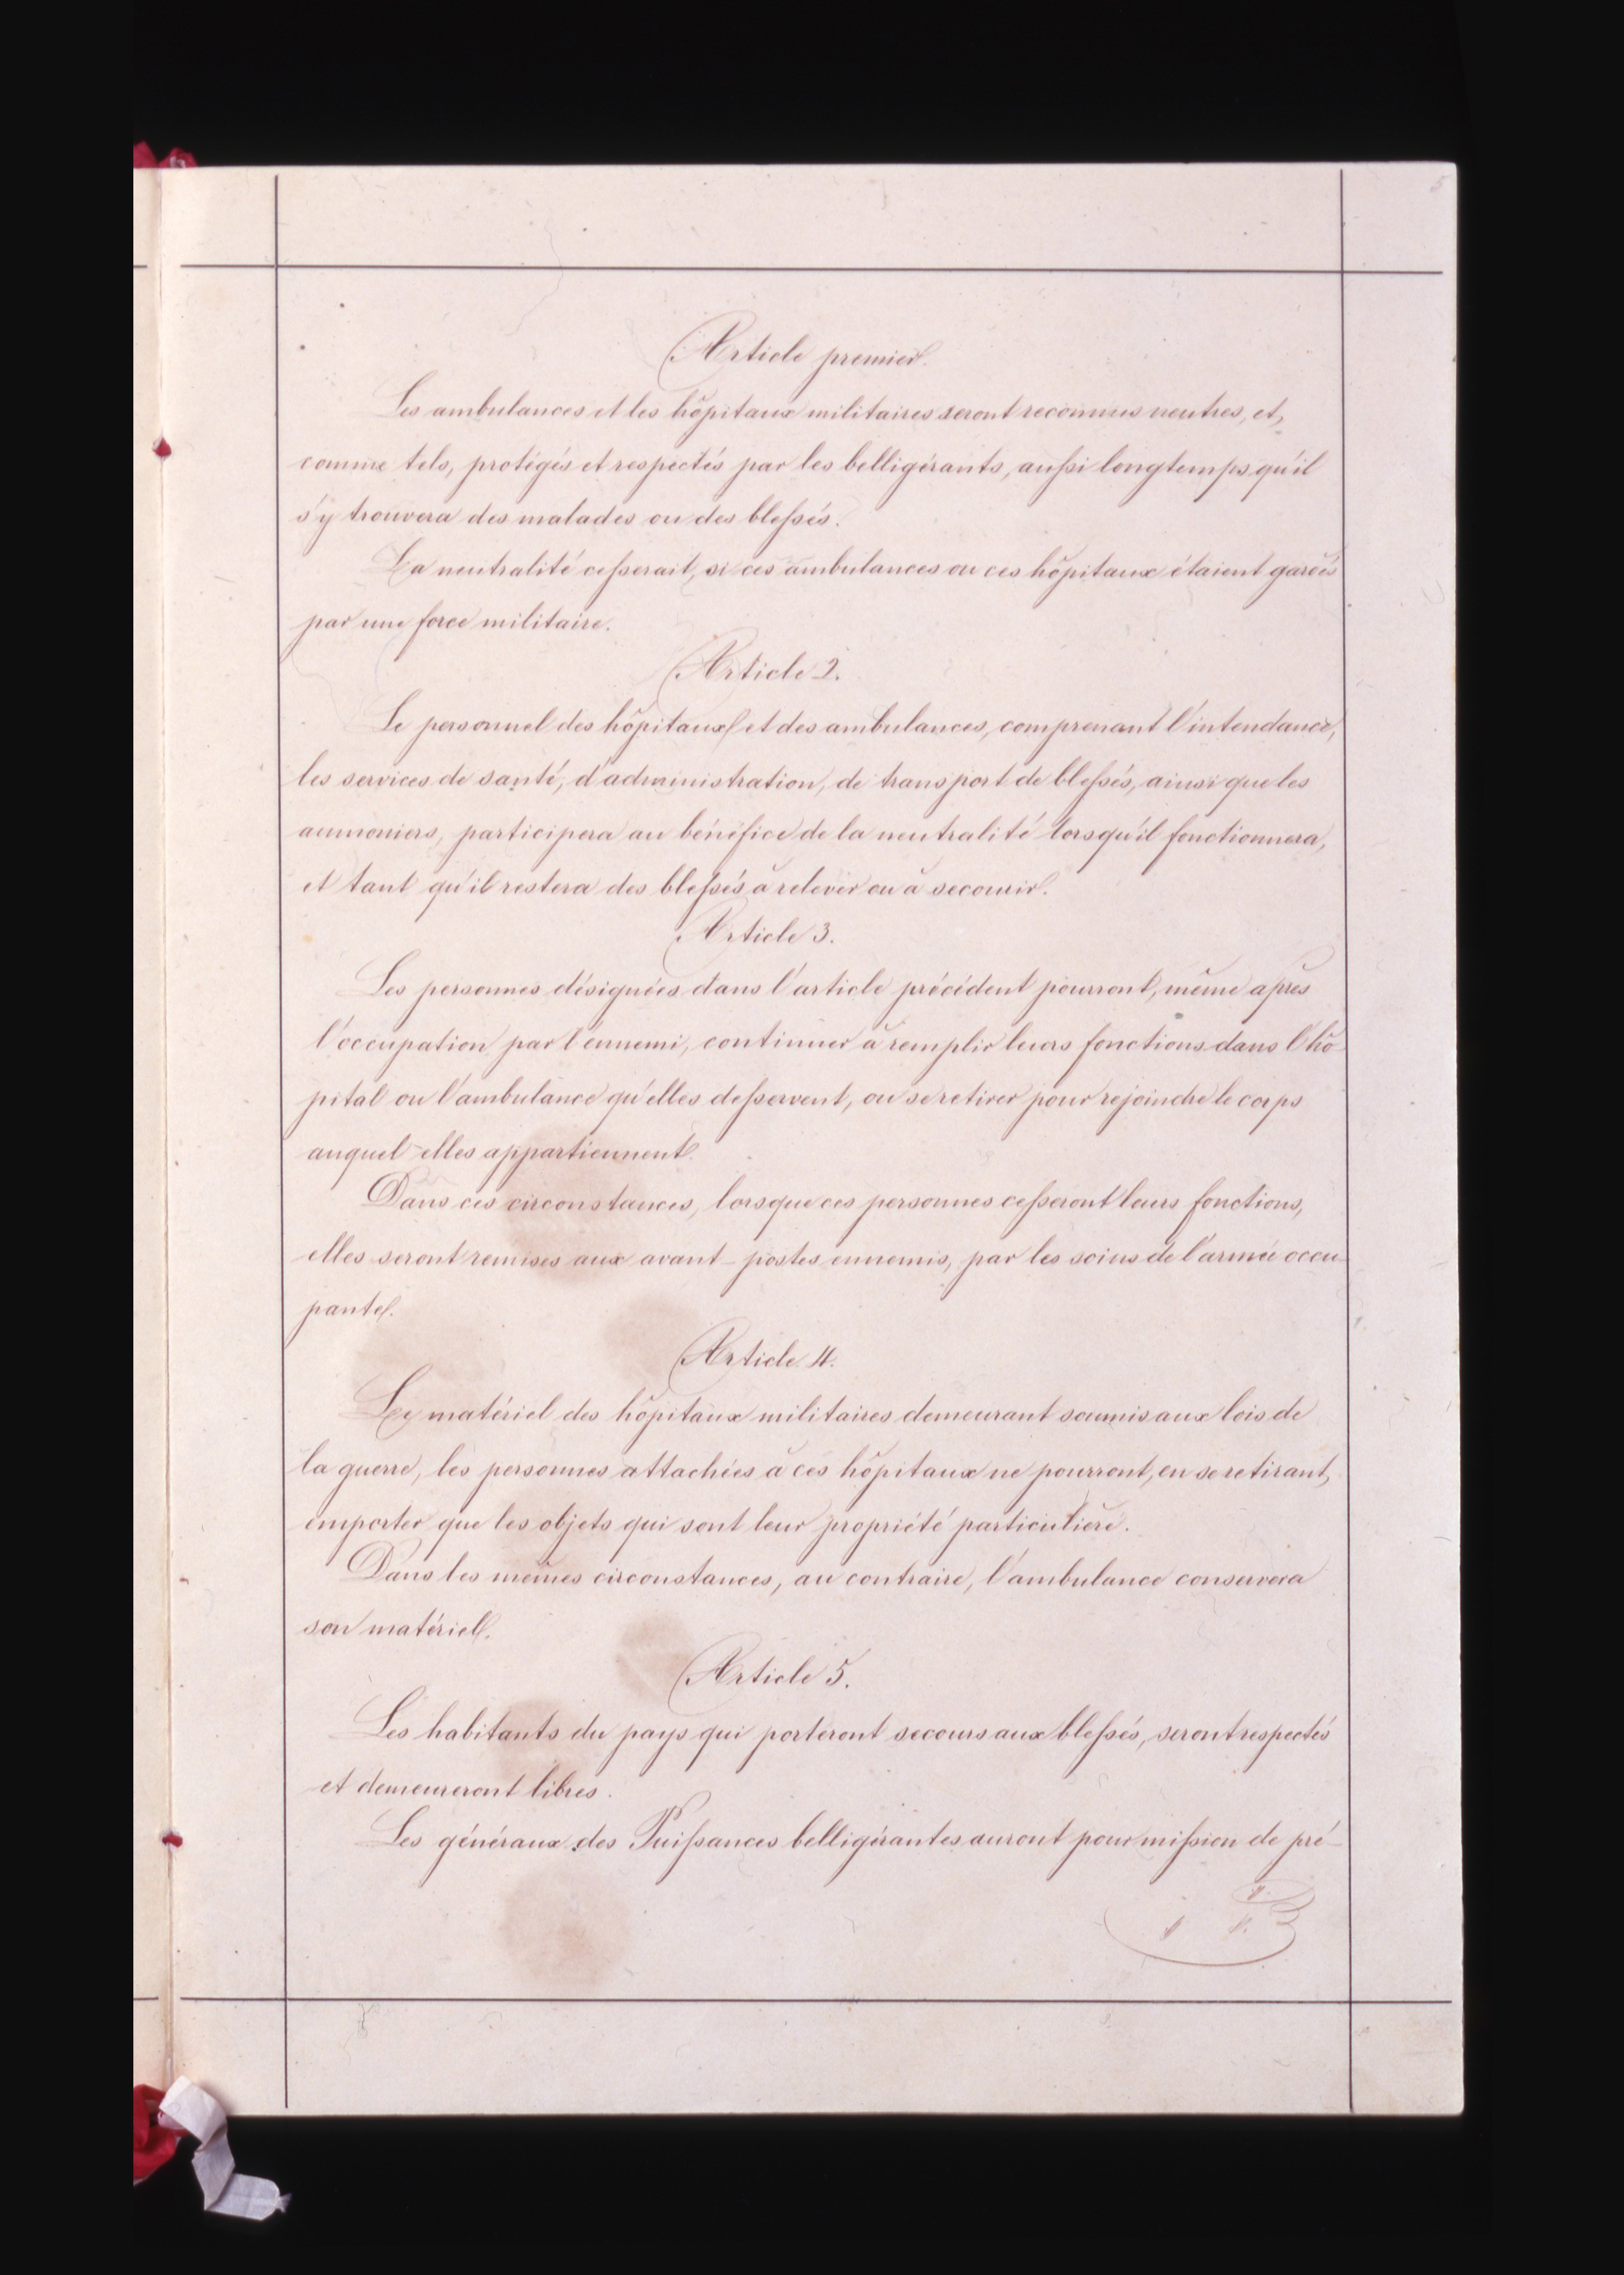 5
Article premier.
Les ambulances et les hôpitaux militaires seront reconnus neutres, et,
comme tels, protégés et respectés par les belligérants, aussi longtemps qu'il
s'y trouvera des malades ou des blessés.
La neutralité cesserait, si ces ambulances ou ces hôpitaux étaient gardés
par une force militaire.
Article 2.
Le personnel des hôpitaux et des ambulances, comprenant l'intendance,
les services de santé, d'administration, de transport de blessés, ainsi que les
aumoniers, participera au bénéfice de la neutralité lorsqu'il fonctionnera,
et tant qu'il restera des blessés à relever ou à secourir.
Article 3.
Les personnes désignées dans l'article précédent pourront, même après
l'occupation par l'ennemi, continuer à remplir leurs fonctions dans l'hô-
pital ou l'ambulance qu'elles desservent, ou se retirer pour rejoindre le corps
auquel elles appartiennent.
Dans ces circonstances, lorsque ces personnes cesseront leurs fonctions,
elles seront remises aux avant-postes ennemis, par les soins de l'armée occu-
pante.
Article 4.
Le matériel des hôpitaux militaires demeurant soumis aux lois de
la guerre, les personnes attachées à ces hôpitaux ne pourront, en se retirant,
emporter que les objets qui sont leur propriété particulière.
Dans les mêmes circonstances, au contraire, l'ambulance conservera
son matériel.
Article 5.
Les habitants du pays qui porteront secours aux blessés, seront respectés
et demeureront libres.
Les généraux des Puissances belligérantes auront pour mission de pré-